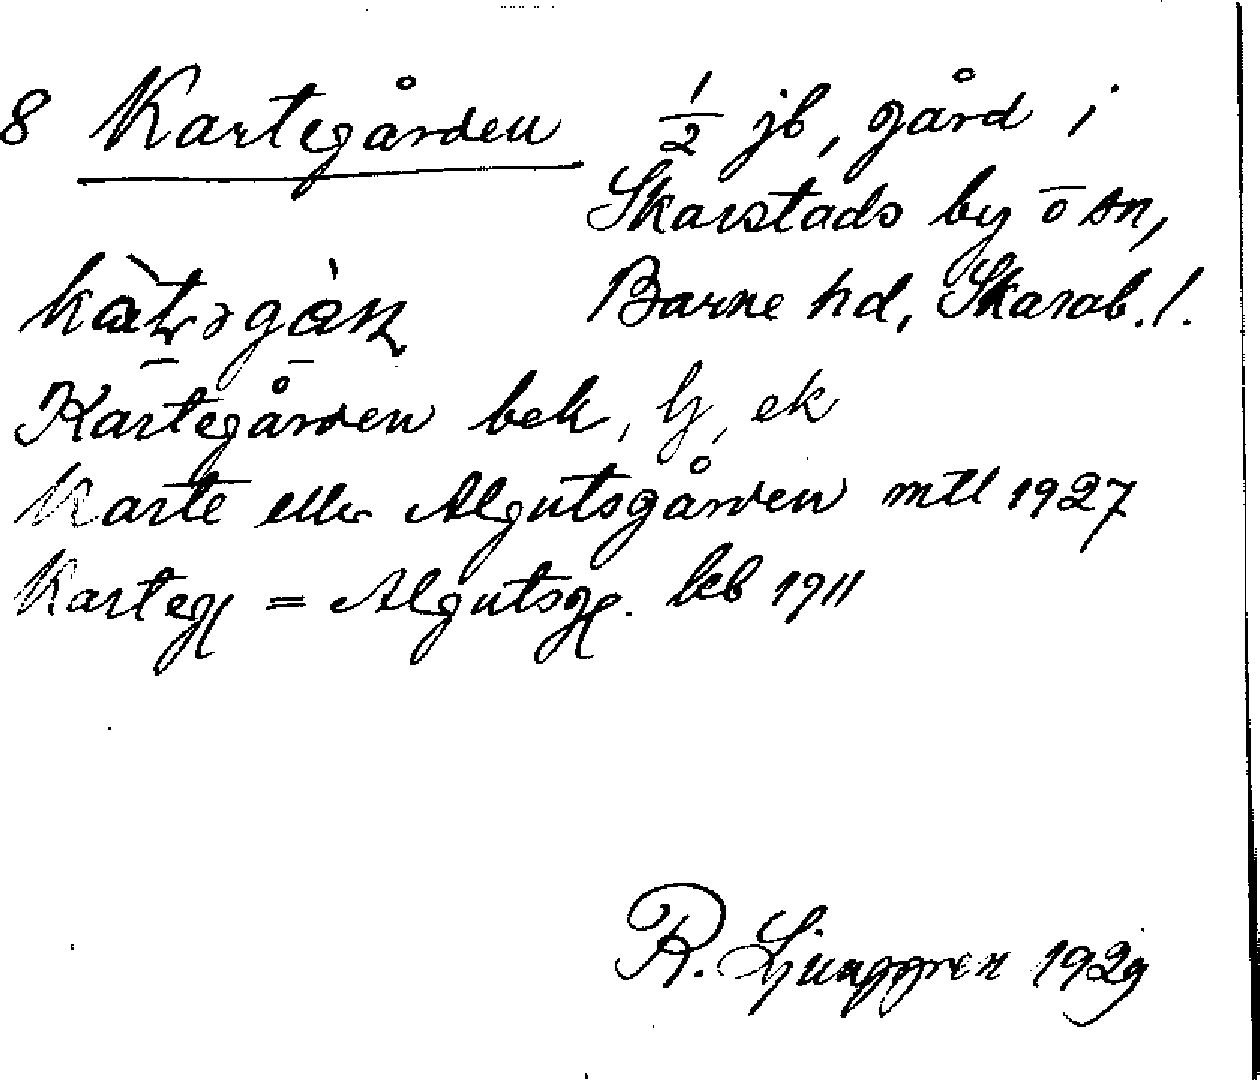 8 Kartegården 1/2 jb, gård i
Skarstads by o sn,
Barne hd, Skarab. l.
Kartegården bek, lj, ek
Karte eller Algutsgården mtl 1927
Karteg = Algutsg. keb 1911
R. Ljunggren 1929